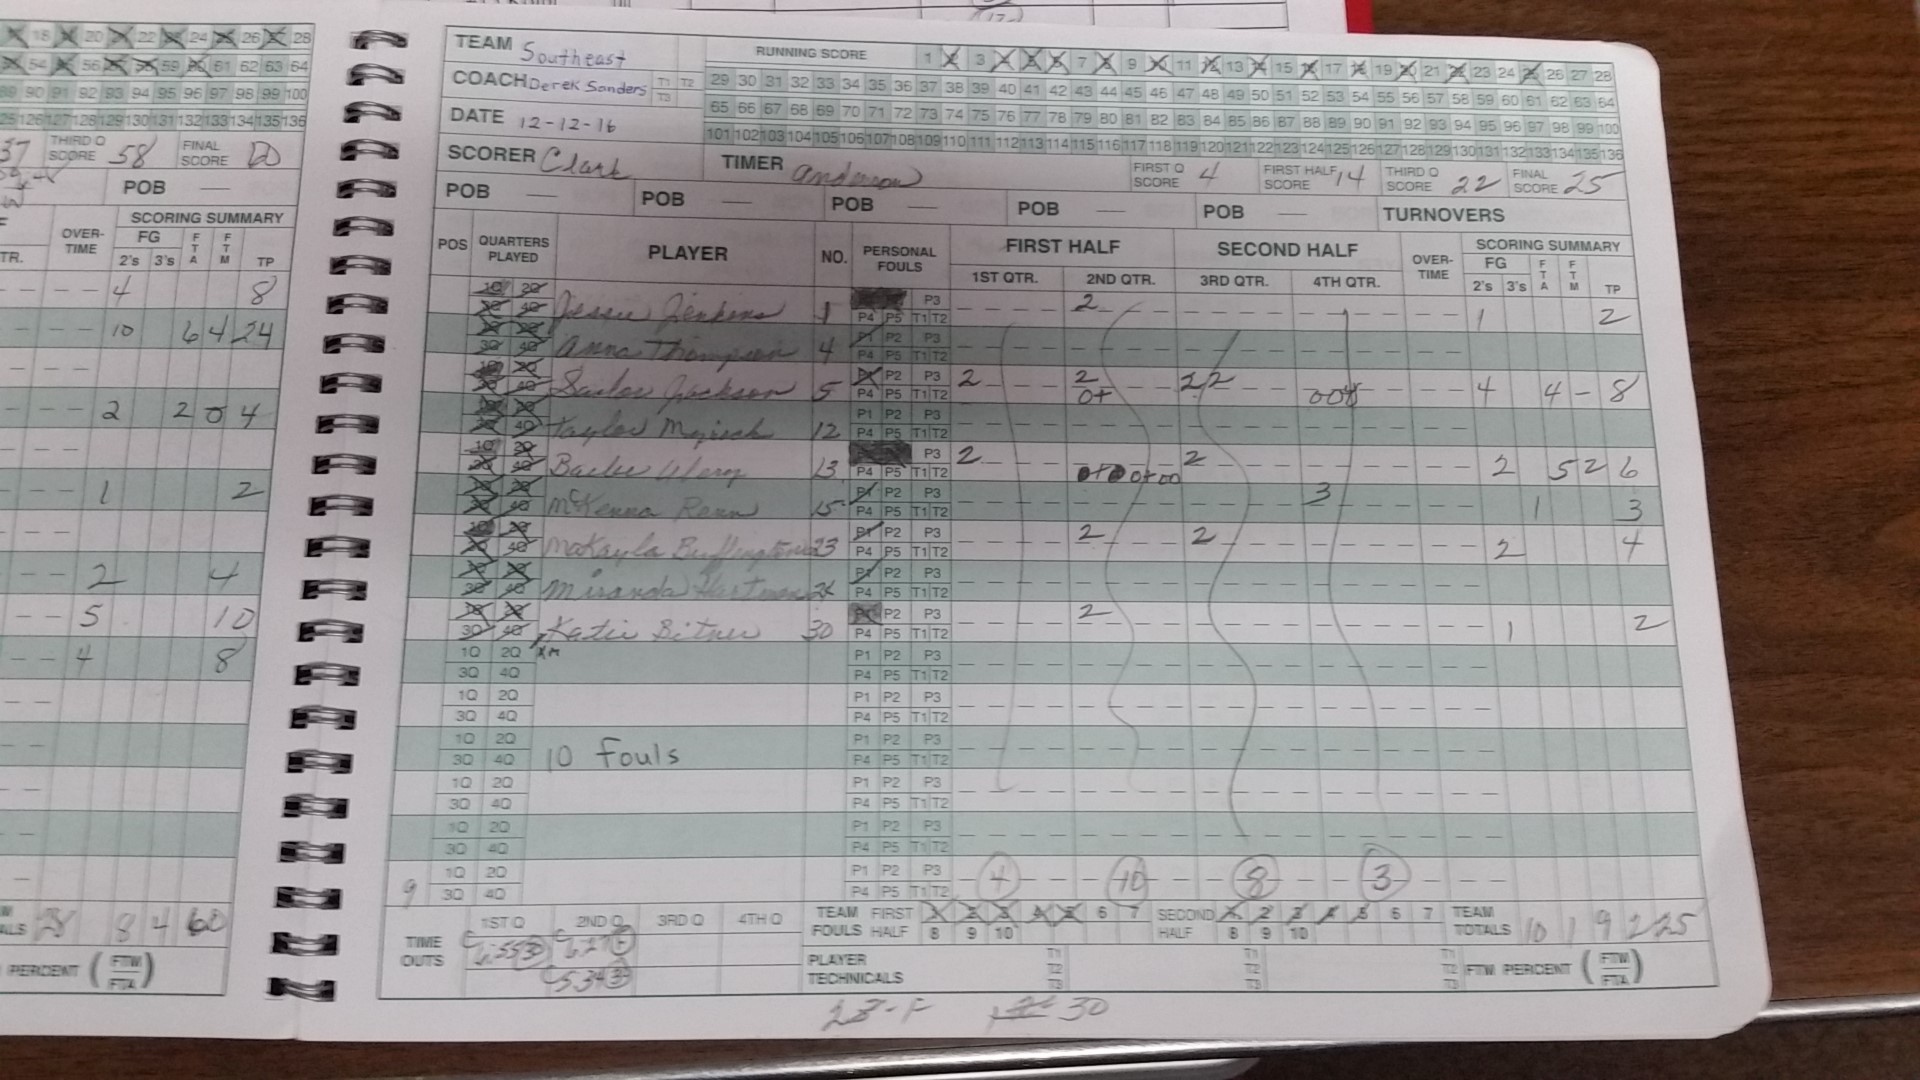 18 20 22 24 26 28
54 56 59 61 62 63 64
89 90 91 92 93 94 95 96 97 98 99 100
125 126 127 128 129 130 131 132 133 134 135 136
37 THIRD Q SCORE 58 FINAL SCORE
POB —
OVER-TIME SCORING SUMMARY
FG FTA FTM
TR. 2's 3's TP
4 8
10 6 4 24
2 2 0 4
1 2
2 4
5 10
4 8
28 8 4 60
PERCENT (FTM/FTA)
TEAM Southeast RUNNING SCORE 1 2 3 4 5 6 7 8 9 10 11 12 13 14 15 16 17 18 19 20 21 22 23 24 25 26 27 28
COACH Derek Sanders T1 T2 T3 29 30 31 32 33 34 35 36 37 38 39 40 41 42 43 44 45 46 47 48 49 50 51 52 53 54 55 56 57 58 59 60 61 62 63 64
65 66 67 68 69 70 71 72 73 74 75 76 77 78 79 80 81 82 83 84 85 86 87 88 89 90 91 92 93 94 95 96 97 98 99 100
DATE 12-12-16 101 102 103 104 105 106 107 108 109 110 111 112 113 114 115 116 117 118 119 120 121 122 123 124 125 126 127 128 129 130 131 132 133 134 135 136
SCORER Clark TIMER Anderson FIRST Q SCORE 4 FIRST HALF SCORE 14 THIRD Q SCORE 22 FINAL SCORE 25
POB — POB — POB — POB — POB — TURNOVERS
POS QUARTERS PLAYED PLAYER NO. PERSONAL FOULS FIRST HALF SECOND HALF OVER-TIME SCORING SUMMARY
1ST QTR. 2ND QTR. 3RD QTR. 4TH QTR. FG 2's 3's FTA FTM TP
1Q 2Q 3Q 4Q Jessie Jenkins 1 P3 P4 P5 T1 T2 2 1 2
3Q 4Q Anna Thompson 4 P1 P2 P3 P4 P5 T1 T2
Jackson 5 P2 P3 P4 P5 T1 T2 2 2 22 4 4 - 8
4Q Taylor 12 P1 P2 P3 P4 P5 T1 T2
1Q 2Q Bailee 13 P3 P4 P5 T1 T2 2 2 2 5 2 6
McKenna Rann 15 P1 P2 P3 P4 P5 T1 T2 3 1 3
4Q Makayla Buffington 23 P1 P2 P3 P4 P5 T1 T2 2 2 2 4
3Q 4Q Miranda Hartman P1 P2 P3 P4 P5 T1 T2
3Q 4Q Katie Bitner 30 P2 P3 P4 P5 T1 T2 2 1 2
1Q 2Q P1 P2 P3
3Q 4Q P4 P5 T1 T2
1Q 2Q P1 P2 P3
3Q 4Q P4 P5 T1 T2
1Q 2Q P1 P2 P3
3Q 4Q 10 Fouls P4 P5 T1 T2
1Q 2Q P1 P2 P3
3Q 4Q P4 P5 T1 T2
1Q 2Q P1 P2 P3
3Q 4Q P4 P5 T1 T2
1Q 2Q P1 P2 P3 4 10 8 3
9 3Q 4Q P4 P5 T1 T2
1ST Q 2ND Q 3RD Q 4TH Q TEAM FOULS FIRST HALF 1 2 3 4 5 6 7 8 9 10 SECOND HALF 1 2 3 4 5 6 7 8 9 10 TEAM TOTALS 10 1 9 2 25
TIME OUTS 5:34 PLAYER TECHNICALS T1 T2 T3 T1 T2 T3 T1 T2 T3 FTM PERCENT (FTM/FTA)
28-F 30